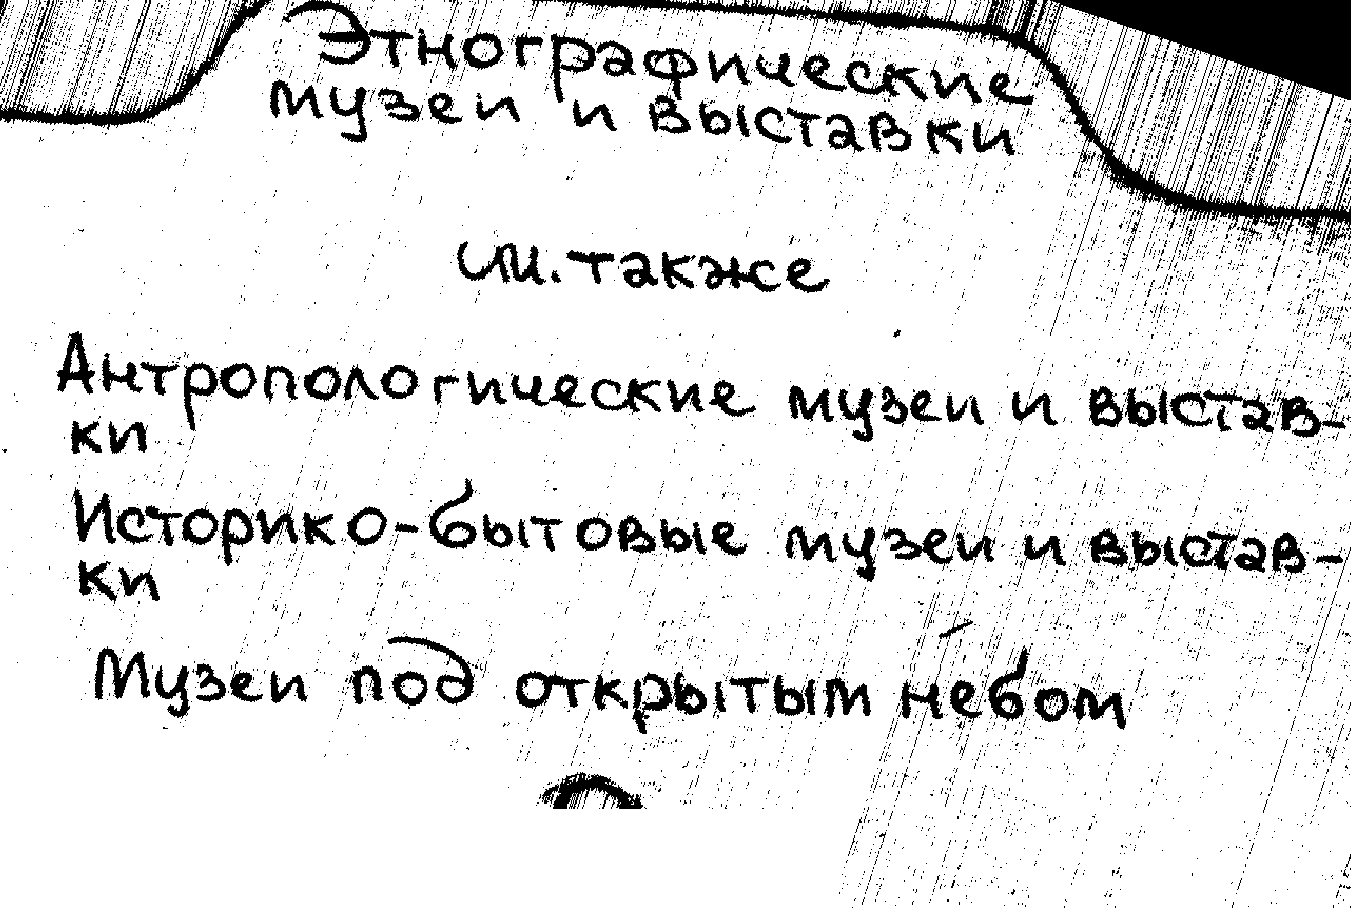 Этнографические
музеи и выставки
см. также
Антропологические музеи и выстав-
ки
Историко-бытовые музеи и выстав-
ки
Музеи под открытым небом